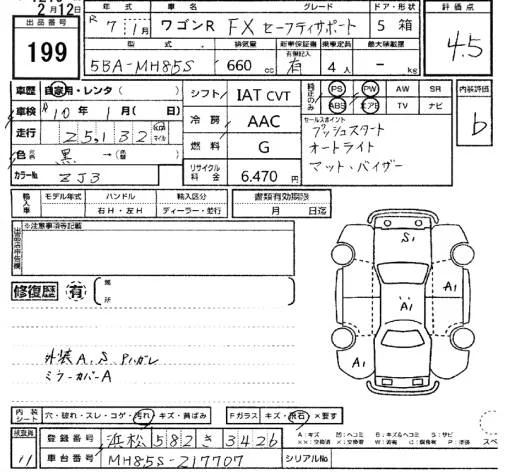 2月12日
出品番号
199
年式 車名 グレード ドア・形状
R 7 1月 ワゴンR FX セーフティサポート 5 箱
型式 排気量 新車保証書 有無記入 乗車定員 最大積載量
5BA-MH85S 660cc 有 4人 - kg
評価点
4.5
車歴 自家用・レンタ( )
車検 R10年 1月( 日)
走行 25,132 km マイル
色 元色 黒 →(色替 )
カラーNo ZJ3
シフト IAT CVT
冷房 AAC
燃料 G
リサイクル料金 6,470円
純正のみ
PS PW AW SR
ABS エアB TV ナビ
セールスポイント
プッシュスタート
オートライト
マット、バイザー
内装評価
b
輸入車
モデル年式 ハンドル 輸入区分
右H・左H ディーラー・並行
書類有効期限
月 日迄
出品店申告欄
※注意事項等記載
修復歴 有
箇所
S1
A1
A1
A1
A1
外装A、S Pハガレ
ミラーカバーA
内装シート 穴・破れ・スレ・コゲ・汚れ・キズ・黄ばみ
Fガラス キズ・飛石・×要す
検査員
11
登録番号 浜松 582 き 3426
車台番号 MH85S-217707
シリアルNo
A:キズ 凹:ヘコミ B:キズ&ヘコミ S:サビ
スペ